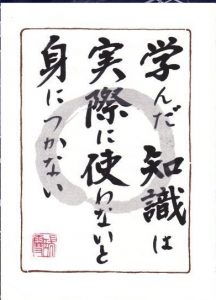 学んだ知識は
実際に使わないと
身につかない